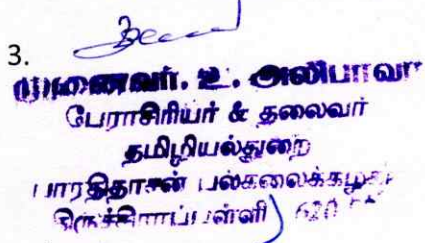 3.
முனைவர். உ. அலிபாவா
பேராசிரியர் & தலைவர்
தமிழியல்துறை
பாரதிதாசன் பல்கலைக்கழகம்
திருச்சிராப்பள்ளி 620